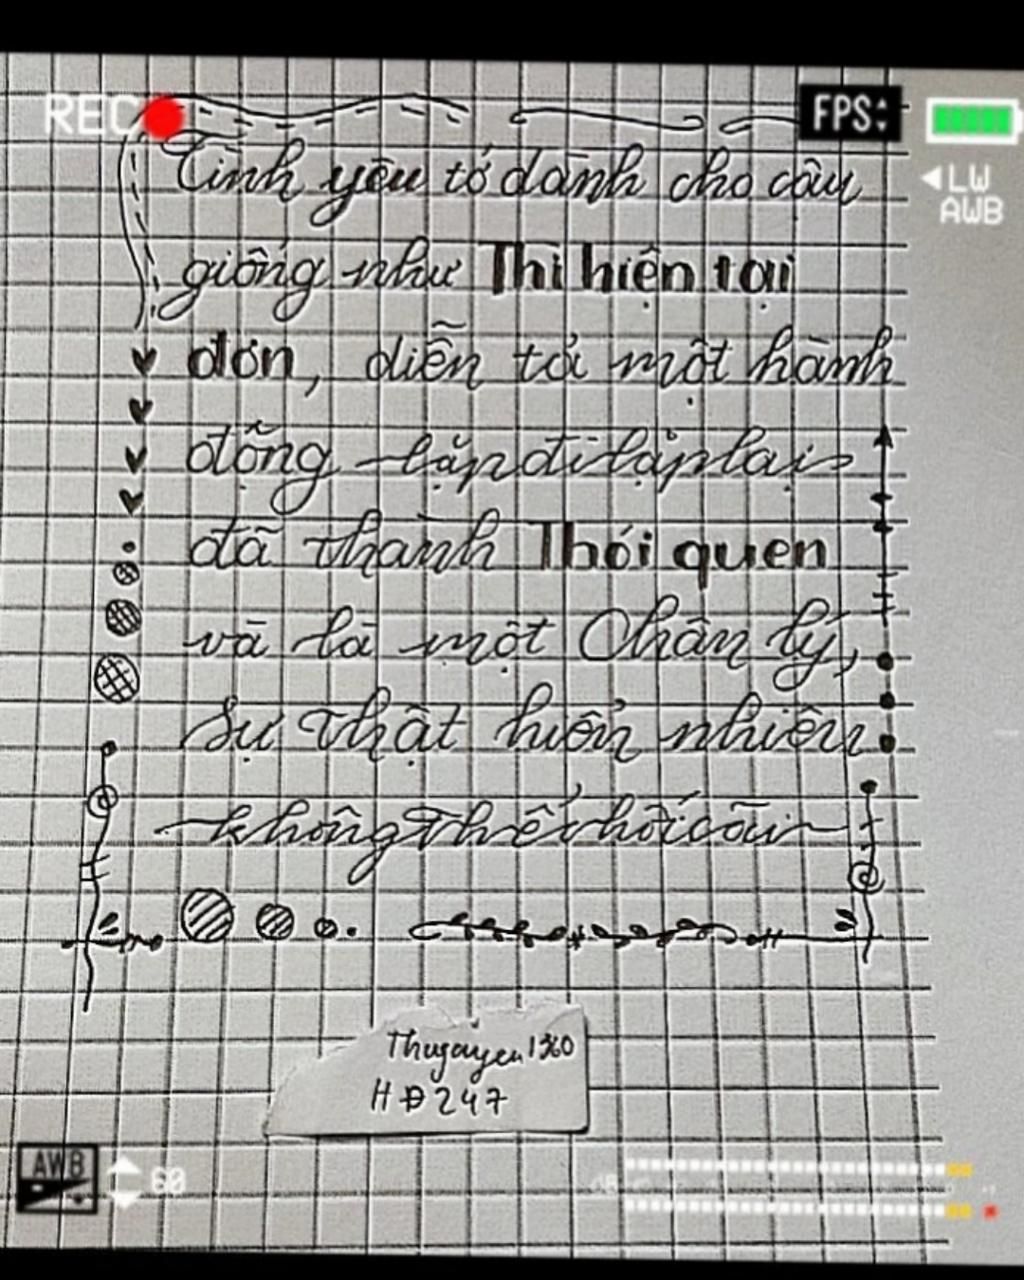 REC
FPS
LW
AWB
Tình yêu tớ dành cho cậu
giống như Thì hiện tại
đơn, diễn tả một hành
động lặp đi lặp lại
đã thành Thói quen
và là một Chân lý,
Sự thật hiển nhiên
không thể chối cãi
HĐ247
AWB
60